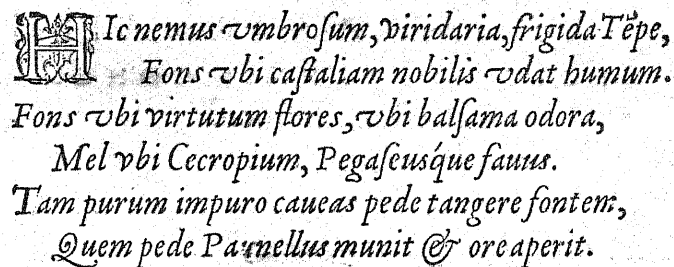 HIc nemus vmbroſum, viridaria, frigida Tẽpe,
Fons vbi caſtaliam nobilis vdat humum.
Fons vbi virtutum flores, vbi balſama odora,
Mel vbi Cecropium, Pegaſeusq́ue fauus.
Tam purum impuro caueas pede tangere fontem,
Quem pede Parnellus munit & ore aperit.